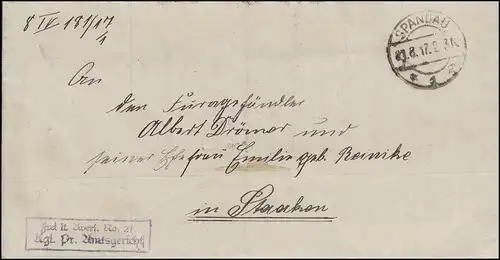 8 IV 181/17
4
SPANDAU
21.8.17.2-3N.
An
den Furagehändler
Albert Drömer und
seiner Ehefrau Emilie geb. Reinike
in Staaken
Frei lt. Avers. No. 21
Kgl. Pr. Amtsgericht